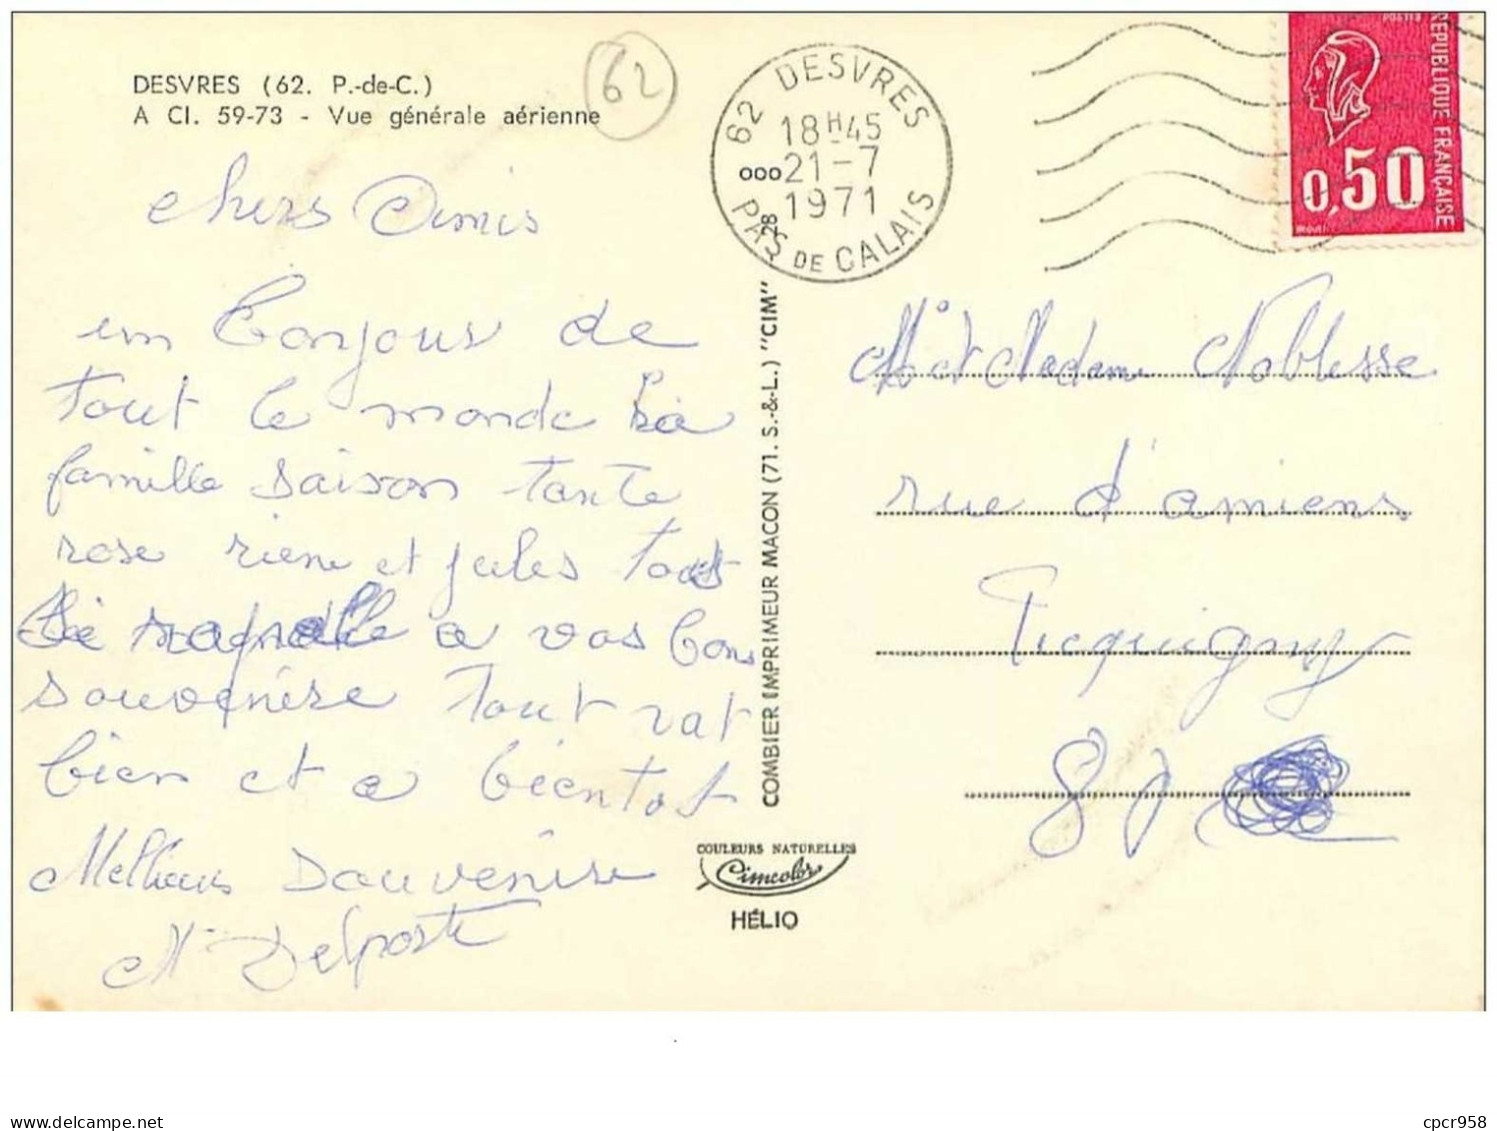 DESVRES (62. P.-de-C.)
A Cl. 59-73 - Vue générale aérienne
62
62 DESVRES
18H45
000 21-7
1971
28
PAS DE CALAIS
POSTES
RÉPUBLIQUE FRANÇAISE
0,50
chers Amis
un Bonjour de
tout le monde La
famille saison tante
rose riene et jules tous
se rapelle a vos bons
souvenire tout vat
bien et a bientot
Meillieurs Souvenire
Mr Delporte
COMBIER IMPRIMEUR MACON (71. S.-&-L.) "CIM"
COULEURS NATURELLES
Cimcolor
HÉLIO
Mr et Madame Noblesse
rue d'amiens
Picquigny
80
cpcr958